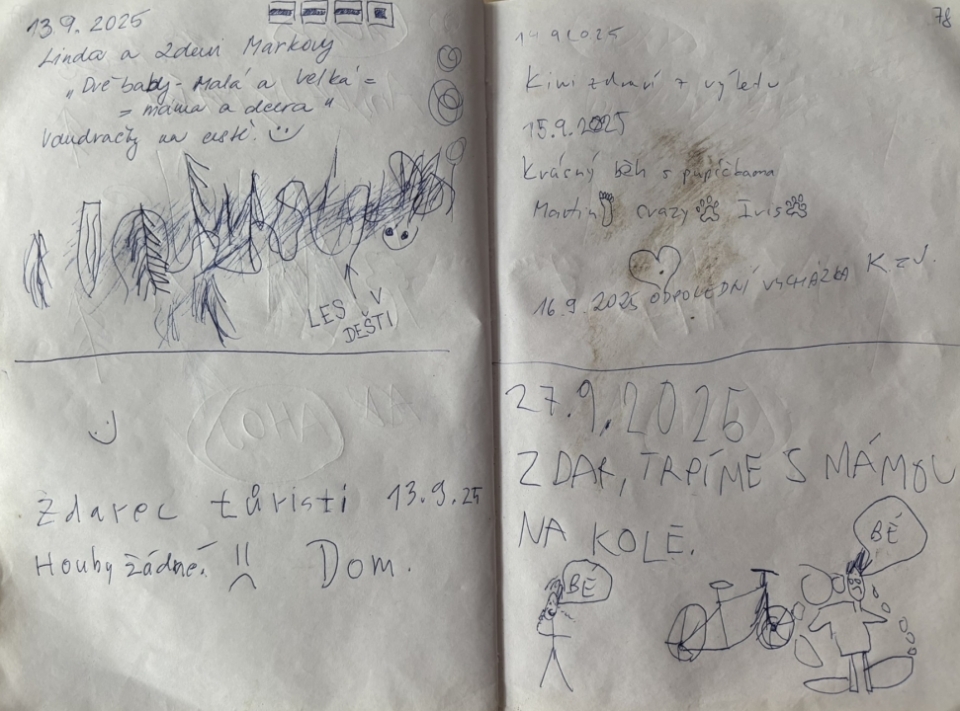 13.9.2025
Linda a Zdeni Markovy
„Dvě baby - Malá a Velká =
= máma a dcera"
Vandračky na cestě.
LES V
DEŠTI
Zdarec tůristi 13.9.25
Houby žádné.
Dom.
78
14.9.2025
Kiwi zdraví z výletu
15.9.2025
Krásný běh s
Martin Crazy Iris
16.9.2025 ODPOLEDNÍ VYCHÁZKA K z J.
27.9.2025
ZDAR, TRPÍME S MÁMOU
NA KOLE.
BÉ
BÉ